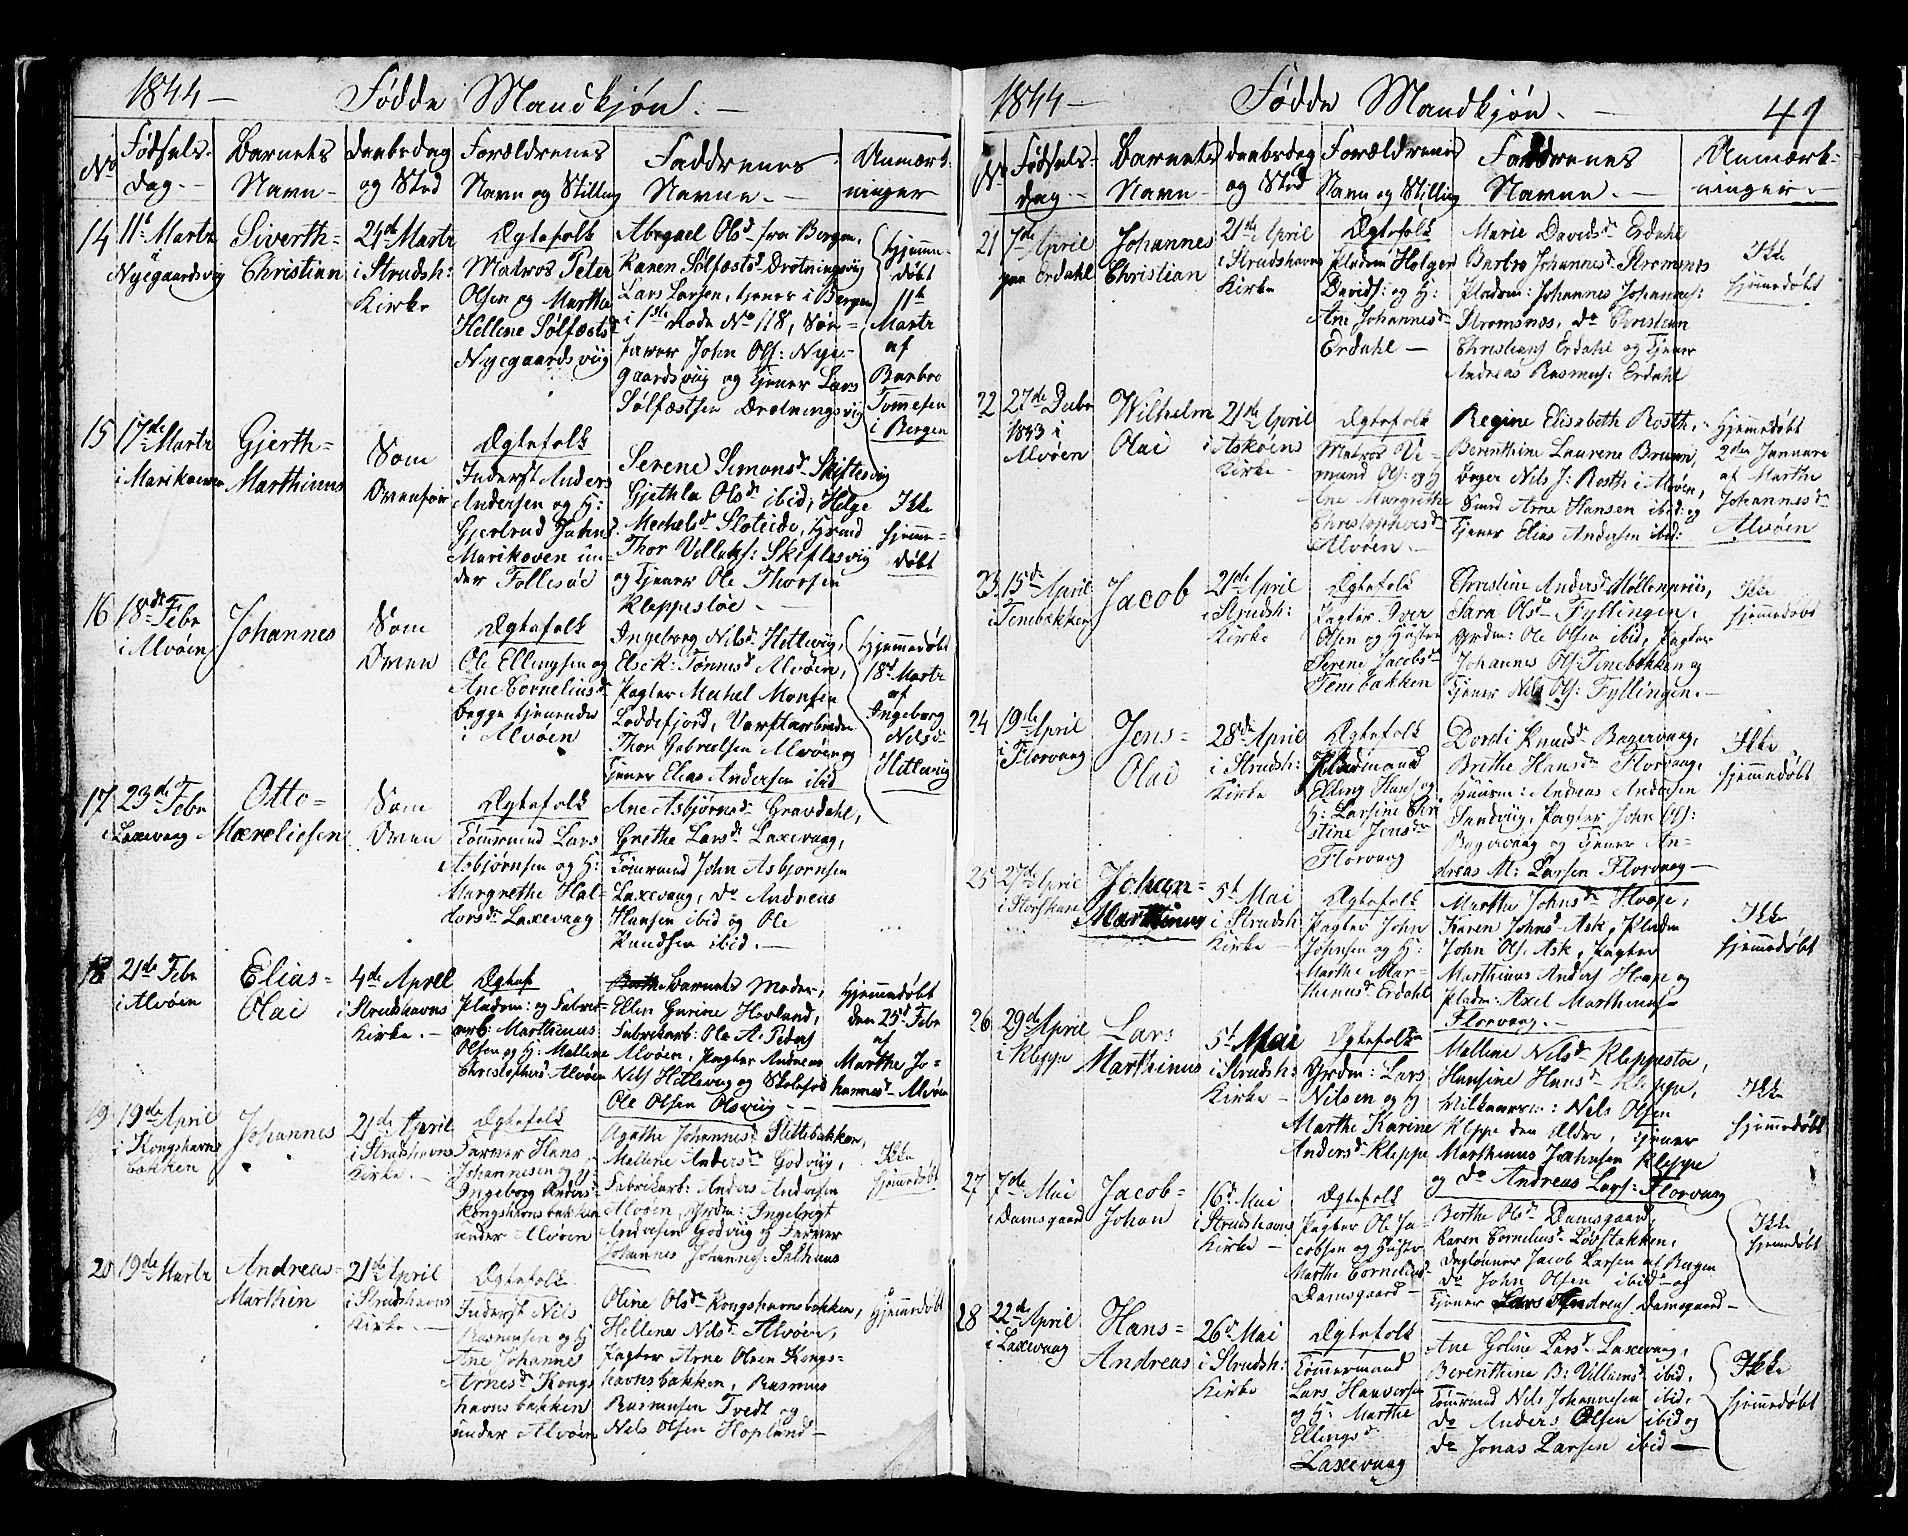 1844 — Fødde Mandkjøn. —
No Fødsels- dag. — Barnets Navn — Daabsdag og Sted Forældrenes Navn og Stilling Faddrenes Navne. — Anmærk- ninger
14 11t Martz i Nyegaardsvig
Siverth- Christian
24de Martz
i Strudsh:
Kirke
Ægtefolk
Matros Peter
Olsen og Marthe
Hellene Sølfæstsd
Nyegaardsviig
Abegael Olsd fra Bergen,
Karen Sølfæstsd Drotningsvig
Lars Larsen, tjener i Bergen
i 1ste Rode No 118, Søe-
farer John Ols: Nye-
gaardsviig og Tjener Lars
Sølfæstsen Drotningsvig
Hjemme-
døbt
11te
Martz
af
Barbro
Tommesen
i Bergen
15 17de Martz
i Marikoven
Gjerth-
Marthinus
Som
Ovenfor
Ægtefolk
Inderst Anders
Andersen og H:
Gjertrud Johnsd
Marikoven un-
der Follesøe
Serene Simonsd Skiftesvig
Gjethla Olsd ibid, Helge
Mechelsd Sloteide, Grmd
Thor Villuks: Skiftesvig
og Tjener Ole Thorsen
Kleppesløe —
Ikke
hjemme-
døbt
16 18de Febr
i Alvøen
Johannes
Som
Oven
Ægtefolk
Ole Ellingsen og
Ane Corneliusd
begge tjenende
i Alvøen
Ingeborg Nilsd Hetlevig,
Elsek: Tønnesd Alvøen,
Pagter Mechel Monsen
Loddefjord, Værftarbeider
Thor Gabrielsen Alvøen og
Tjener Elias Andersen ibid
Hjemmedøbt
18de Martz
af
Ingeborg
Nilsd
Hitlevig
17 23de Febr
i Laxevaag
Otto-
Mæreliesen
Som
Oven
Ægtefolk
Tømrmd Lars
Asbjørnsen og H:
Margrethe Hal-
vorsd Laxevaag
Ane Asbjørnsd Gravdahl,
Grethe Larsd Laxevaag,
Tømrmd John Asbjørnsen
Laxevaag, Do Andreas
Hansen ibid og Ole
Knudsen ibid. —
18 21de Febr
i Alvøen
Elias-
Olai
4de April
i Strudshavns
Kirke. —
Ægtef
Pladsm: og Fabrik-
arb: Marthinus
Olsen og H: Mallene
Christophersd Alvøen
Barnets Moder,
Ellen Gurine Hovland,
Fabrikarb: Ole A: Peders
Alvøen, Pagter Andreas
Nils Hetlevig og Skolefod
Ole Olsen Olsviig —
Hjemmedøbt
den 25de Febr
af
Marthe Jo-
hannesd Alvøen
19 19de April
i Kongshavns
bakken
Johannes
21de April
i Strudshavns
Kirke. —
Ægtefolk
Farver Hans
Johannesen og H:
Ingeborg Andersd
Kongshavnsbakken
under Alvøen
Agathe Johannesd Slettebakken,
Mallene Andersd Godviig,
Fabrikarb: Anders Andersen
Alvøen, Grdm: Ingebrigt
Andersen Godviig og Farver
Johannes Johannes: Salhuus
Ikke
hjemmedøbt
20 19de Martz
Andreas-
Marthin
21de April
i Strudshavns
Kirke. —
Ægtefolk
Inderst Nils
Rasmusen og H
Ane Johanne
Arnesd Kongs
havnsbakken
under Alvøen
Oline Olsd Kongshavnsbakken,
Hellene Nilsd Alvøen,
Pagter Arne Olsen Kongs-
havnsbakken, Rasmus
Rasmusen Tvedt og
Nils Olsen Hopland —
hjemmedøbt
1844 — Fødde Mandkjøn. — 49
No Fødsels- dag. — Barnets Navn — Daabsdag og Sted Forældrenes Navn og Stilling Faddrenes Navne. — Anmærk- ninger. —
21 7de April
paa Erdahl
Johannes
Christian
21de April
i Strudshavns
Kirke
Ægtefolk
Pladsm Holger
Davids: og H:
Ane Johannesd
Erdahl —
Marie Davidsd Erdahl
Barbro Johannesd Stromsnes
Pladsm: Johannes Johannes:
Stromsnes, Do Christian
Christians Erdahl og Tjener
Andreas Rasmus: Erdahl
Ikke
hjemmedøbt
22 27de Decbr
1843 i
Alvøen
Wilhelm
Olai
21de April
i Askøens
Kirke —
Ægtefolk
Matros Ve-
mund Ols: og H
Ane Margrethe
Christophersd
Alvøen. —
Regine Elisabeth Rosth,
Berenthine Laurene Bruun,
Bager Nils J: Rosth i Alvøen,
Smed Arne Hansen ibid: og
Tjener Elias Andersen ibid:
Hjemmedøbt
2de Januari
af Marthe
Johannesd
Alvøen
23 15de April
i Tenebækken
Jacob
21de April
i Strudsh:
Kirke
Ægtefolk
Pagter Iver
Olsen og Hustru
Serene Jacobsd
Tenebakken
Christine Andersd Mollenpriis,
Sara Olsd Fyllingen,
Grdm: Ole Olsen ibid, Pagter
Johannes Ols: Tenebakken og
Tjener Nils Ols: Fyllingen. —
Ikke
hjemmedøbt
24 19de April
i Florvaag
Jens-
Olai
28de April
i Strudsh:
Kirke
Ægtefolk
Pladsmand
Elling Hans: og
H: Larsine Chri
stine Jensd
Florvaag
Dordi Knudsd Bagervaag,
Brithe Hansd Florvaag,
Huusm: Andreas Andersen
Sandviig, Pagter John Ols:
Bagervaag og Tjener An-
dreas M: Larsen Florvaag —
Ikke
hjemmedøbt
25 27de April
i Storskare
Johan-
Marthinus
5t Mai
i Strudsh:
Kirke —
Ægtefolk
Pagter John
Johnsen og H:
Marthe Mar-
thinusd Erdahl
Marthe Johnsd Hoope,
Karen Johnsd Ask, Pladsm
John Ols: Ask, Pagter
Marthinus Anders Hoope og
Pladsm: Axel Marthinus
Florvaag. —
Ikke
hjemmedøbt
26 29de April
i Kleppe
Lars
Marthinus
5t Mai
i Strudsh:
Kirke —
Ægtefolk
Grdm: Lars
Nilsen og H
Marthe Karine
Andersd Kleppe
Mallene Nilsd Kleppestø,
Hansine Hansd Kleppe,
Nils Olsen
Kleppe den Ældre, Tjener
Marthinus Johnsen Kleppe
og Do Andreas Lars: Florvaag
Ikke
hjemmedøbt
27 7de Mai
i Damsgaard
Jacob-
Johan
16de Mai
i Strudshavns
Kirke —
Ægtefolk
Pagter Ole Ja-
cobsen og Hustr
Marthe Cornelisd
Damsgaard —
Berthe Olsd Damsgaard,
Karen Corneliusd Lødstakken,
Daglønner Jacob Larsen af Bergen
Do John Olsen ibid — og
Tjener Lars Andreas Damsgaard —
Ikke
hjemmedøbt
28 22de April
i Laxevaag
Hans-
Andreas
26de Mai
i Strudsh:
Kirke
Ægtefolk
Tømmermand
Lars Haaversen
og H: Marthe
Ellingsd
Laxevaag
Ane Goline Larsd Laxevaag,
Berenthine B: Villumsd ibid,
Tømrmd Nils Johannesen ibid,
Do Anders Olsen ibid og
Do Jonas Larsen ibid —
Ikke
hjemmedøbt